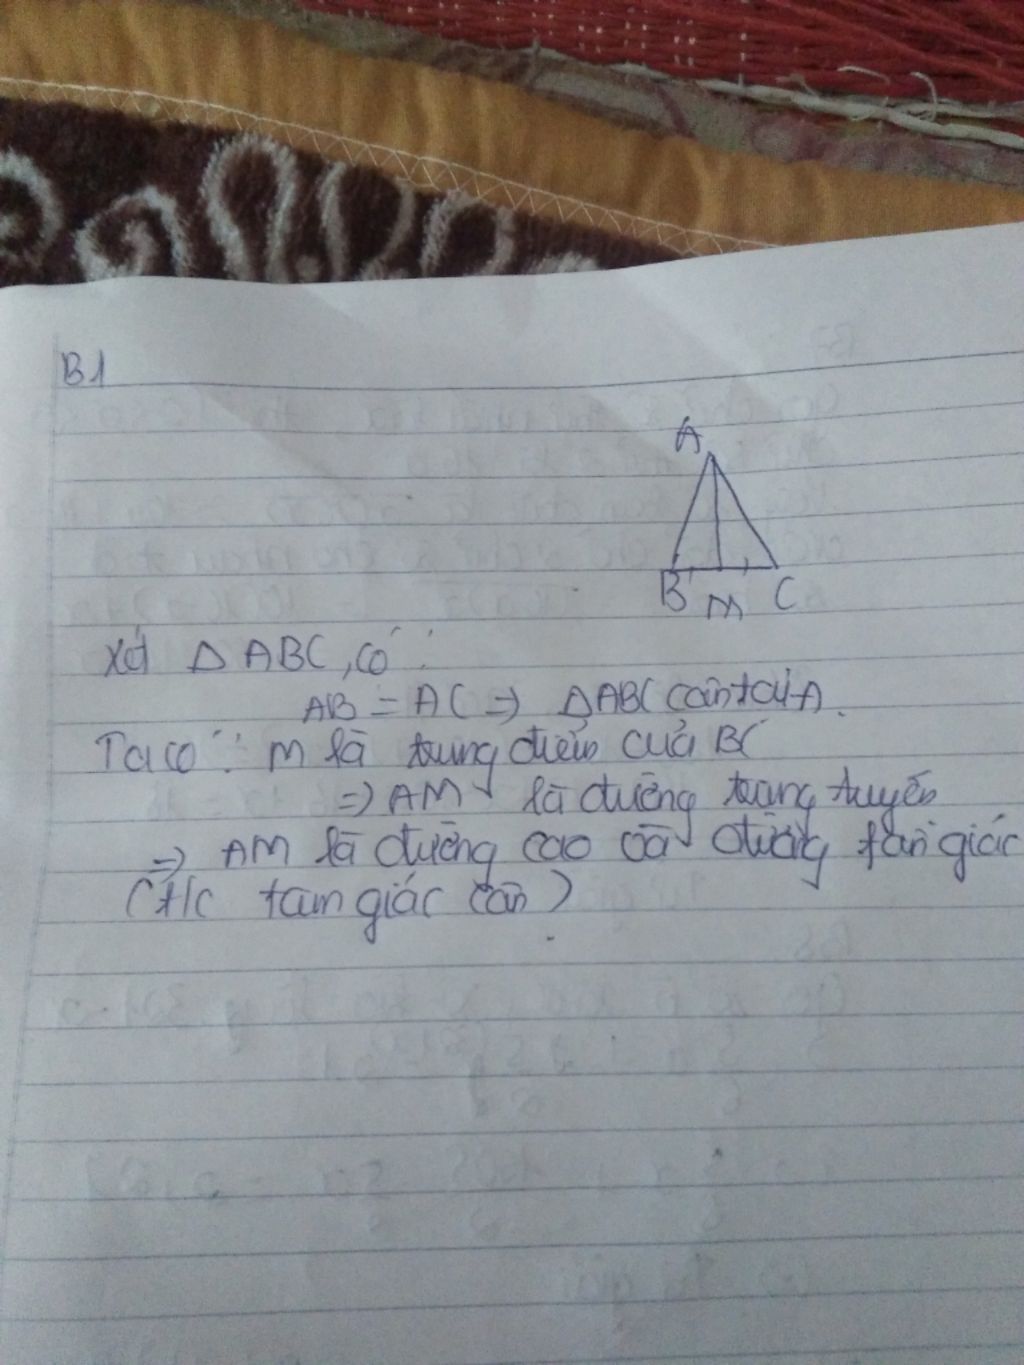 B1
A
B M C
Xét Δ ABC, có:
AB = AC => ΔABC cân tại A.
Ta có: M là trung điểm của BC
=> AM là đường trung tuyến
=> AM là đường cao và đường fân giác
(t/c tam giác cân)